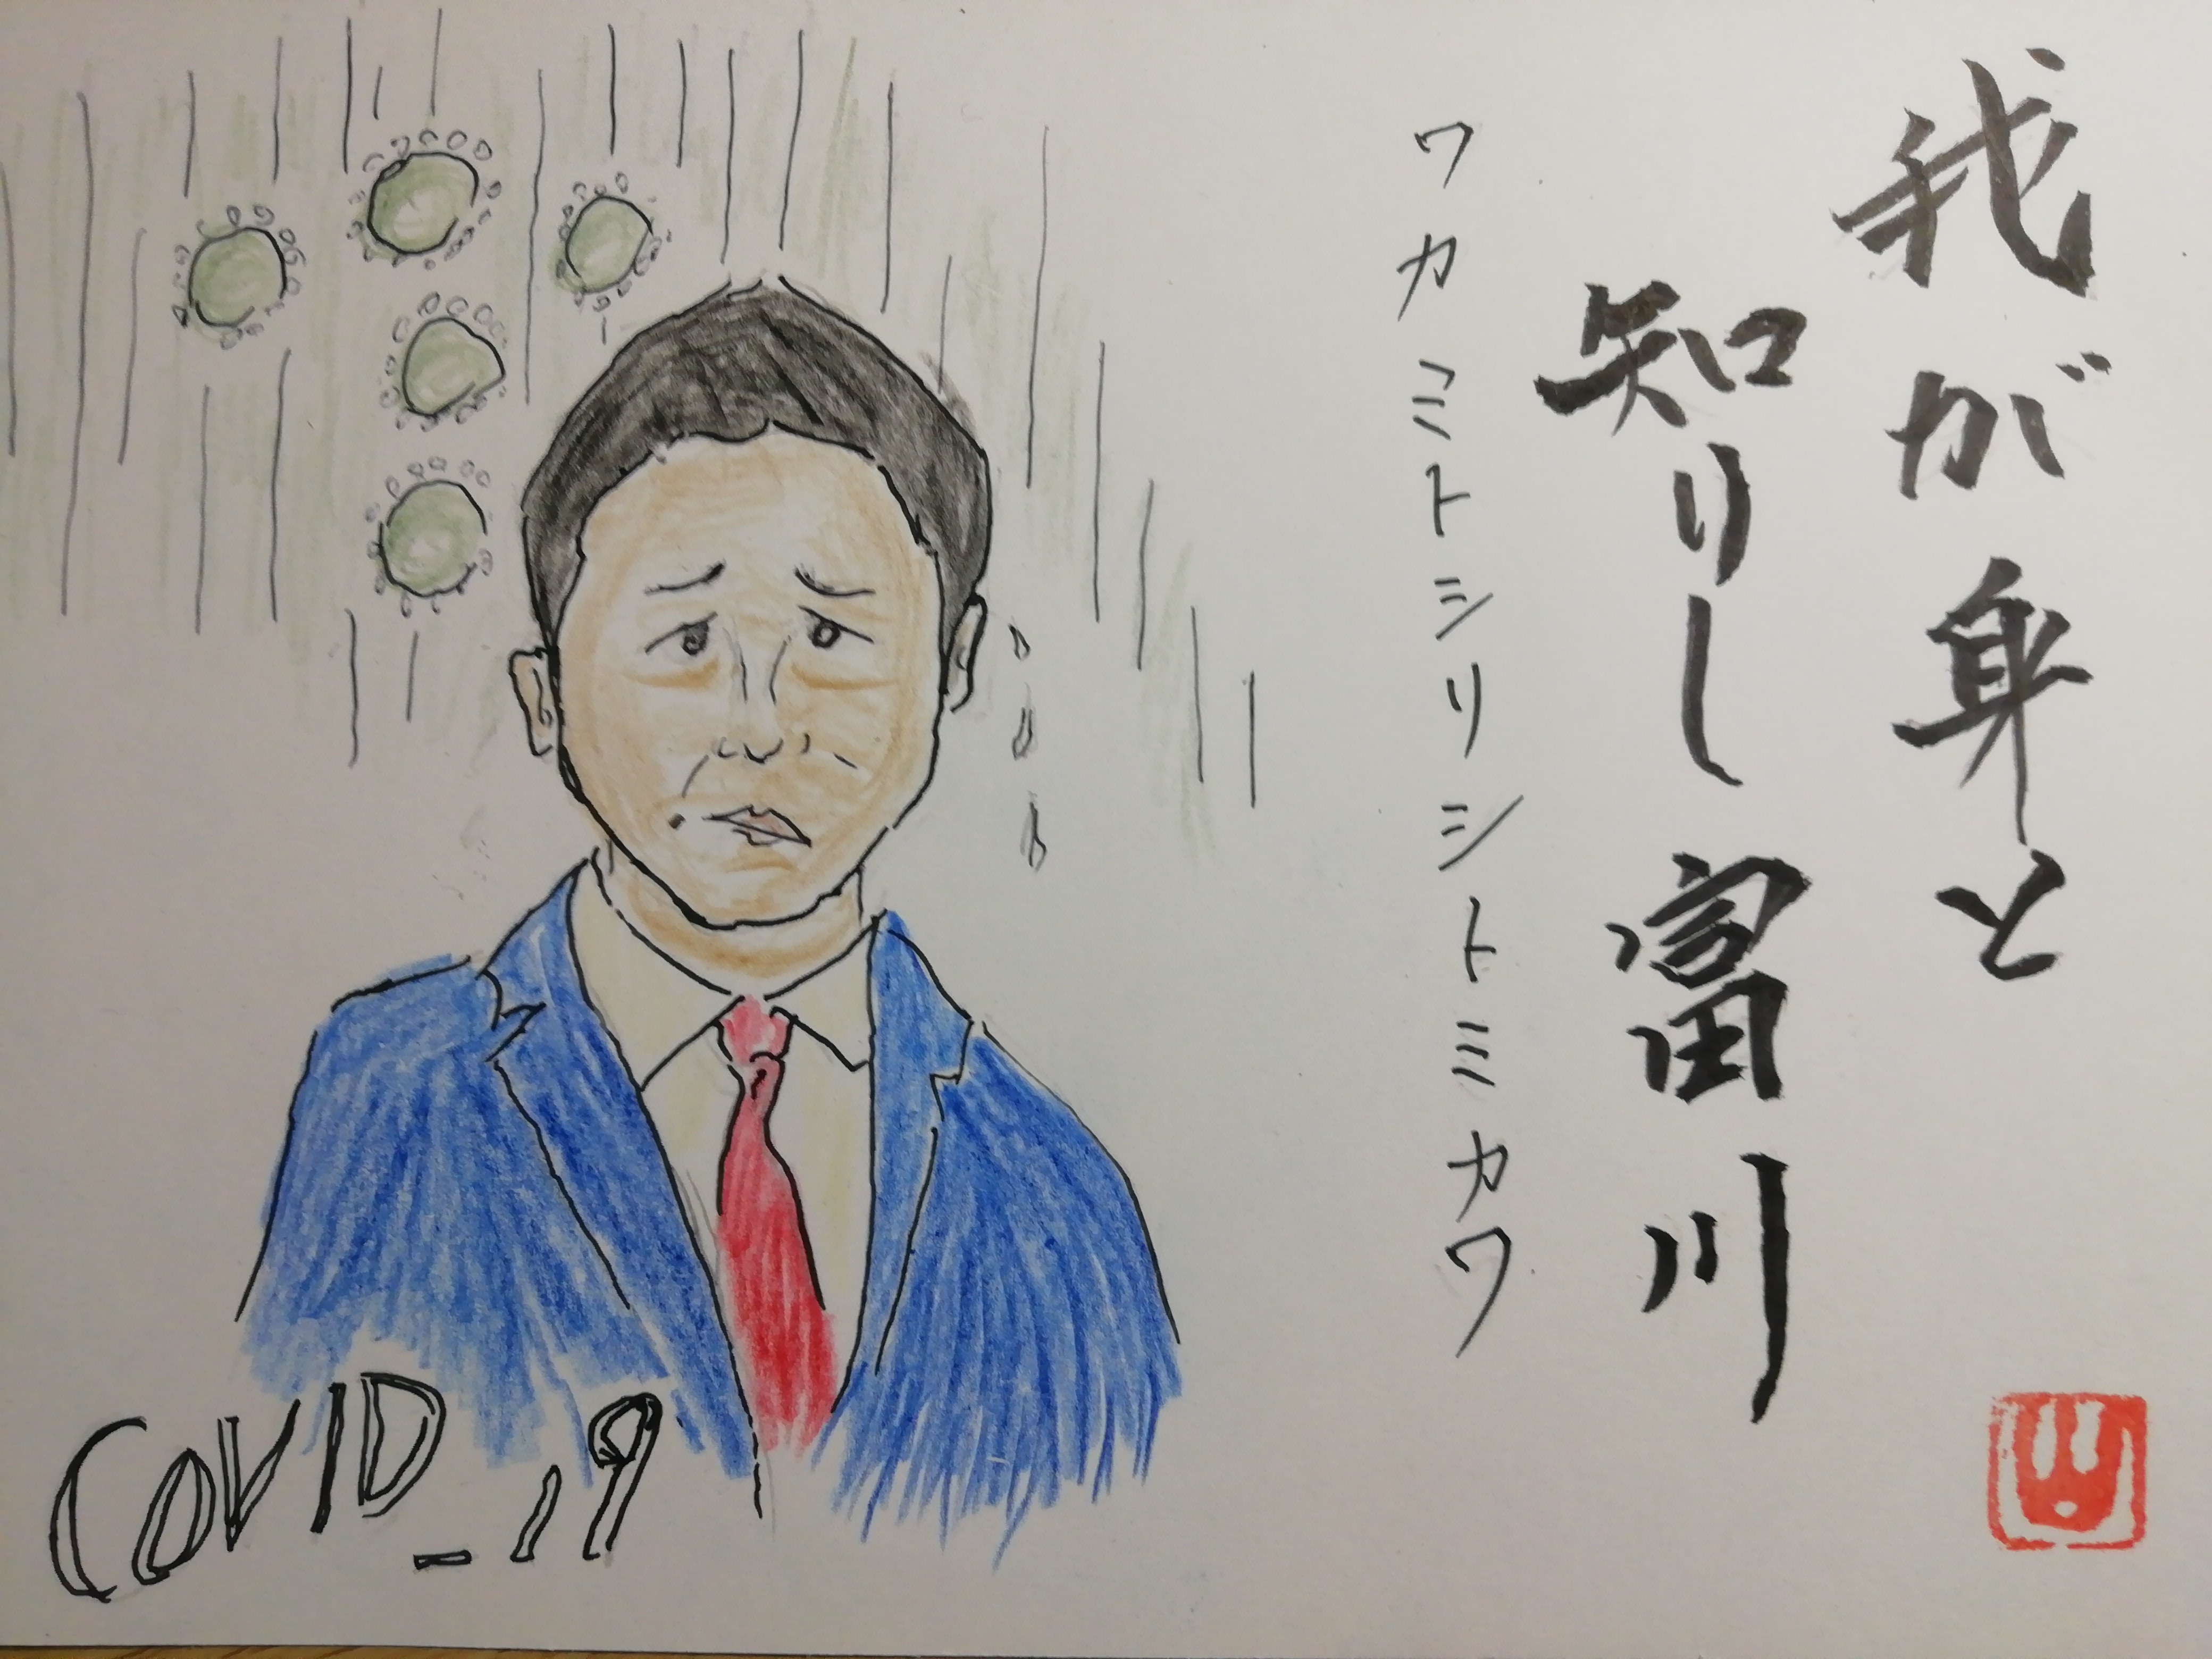 我が身と
知りし富川
ワカミトシリシトミカワ
COVID-19